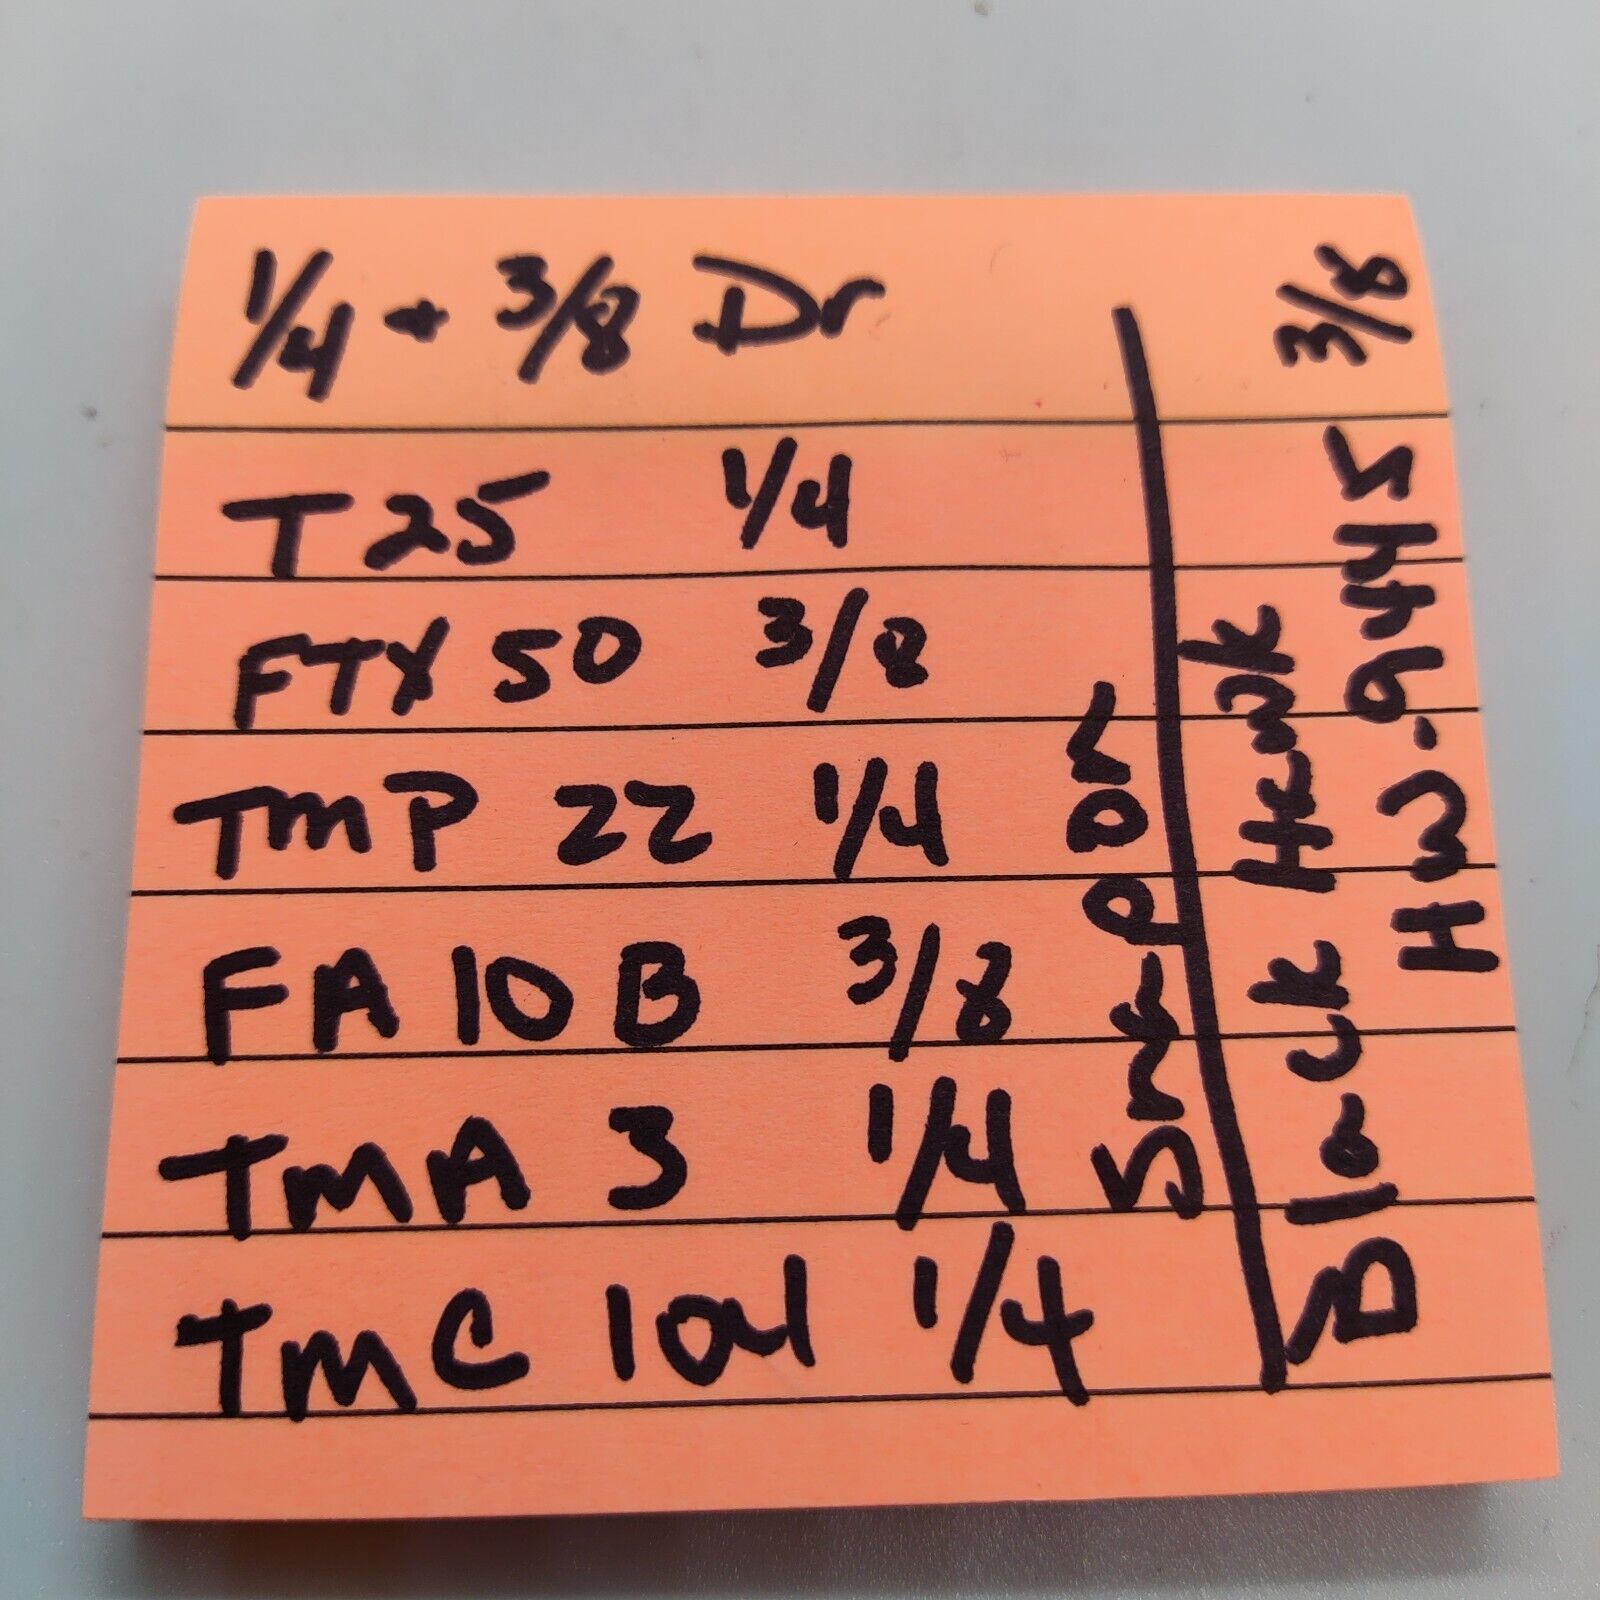 1/4 + 3/8 Dr
T 25 1/4
FTX 50 3/8
TMP 22 1/4
FA 10 B 3/8
TMA 3 1/4
TMC 104 1/4
Snap On
Black Hawk
HW-9445 3/8